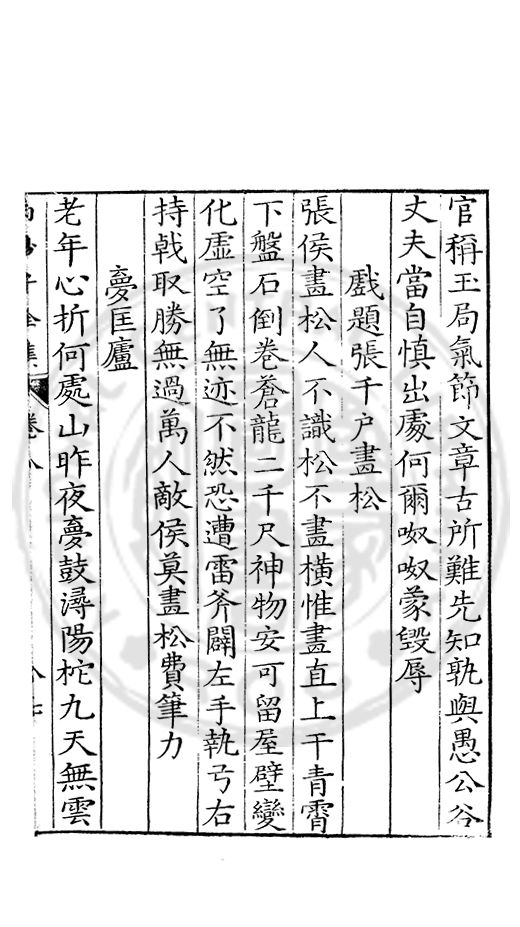 官稱玉局氣節文章古所難先知孰與愚公谷
丈夫當自慎出處何爾呶呶蒙毀辱
戲題張千户畫松
張侯畫松人不識松不畫橫惟畫直上干青霄
下盤石倒卷蒼龍二千尺神物安可留屋壁變
化虛空了無迹不然恐遭雷斧闢左手執弓右
持戟取勝無過萬人敵侯莫畫松費筆力
夢匡廬
老年心折何處山昨夜夢鼓潯陽柁九天無雲
子全集 卷八